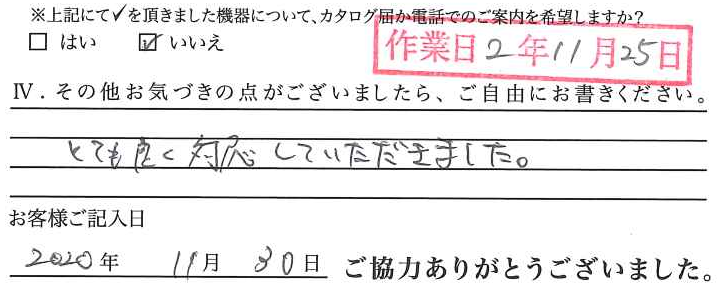 ※上記にて✓を頂きました機器について、カタログ届か電話でのご案内を希望しますか？
□ はい ☑ いいえ
作業日 2年11月25日
Ⅳ．その他お気づきの点がございましたら、ご自由にお書きください。
とても良く対応していただきました。
お客様ご記入日
2020年 11月 30日 ご協力ありがとうございました。